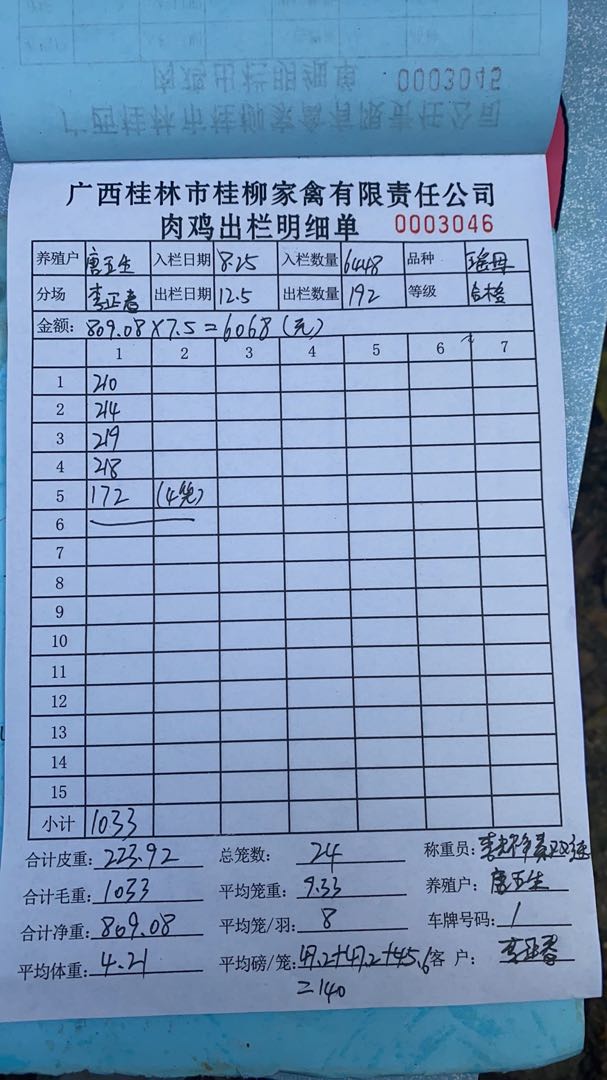 肉鸡出栏明细单 0003045
广西桂林市桂柳家禽有限责任公司
广西桂林市桂柳家禽有限责任公司
肉鸡出栏明细单 0003046
养殖户 唐五生 入栏日期 8.25 入栏数量 6448 品种 瑶母
分场 出栏日期 12.5 出栏数量 192 等级 合格
金额: 809.08×7.5=6068(元)
1 2 3 4 5 6 7
1 210
2 214
3 219
4 218
5 172 (4笼)
6
7
8
9
10
11
12
13
14
15
小计 1033
合计皮重: 223.92 总笼数: 24 称重员:
合计毛重: 1033 平均笼重: 9.33 养殖户: 唐五生
合计净重: 809.08 平均笼/羽: 8 车牌号码: 1
平均体重: 4.21 平均磅/笼: 47.2+47.2+45.6 客户:
=140